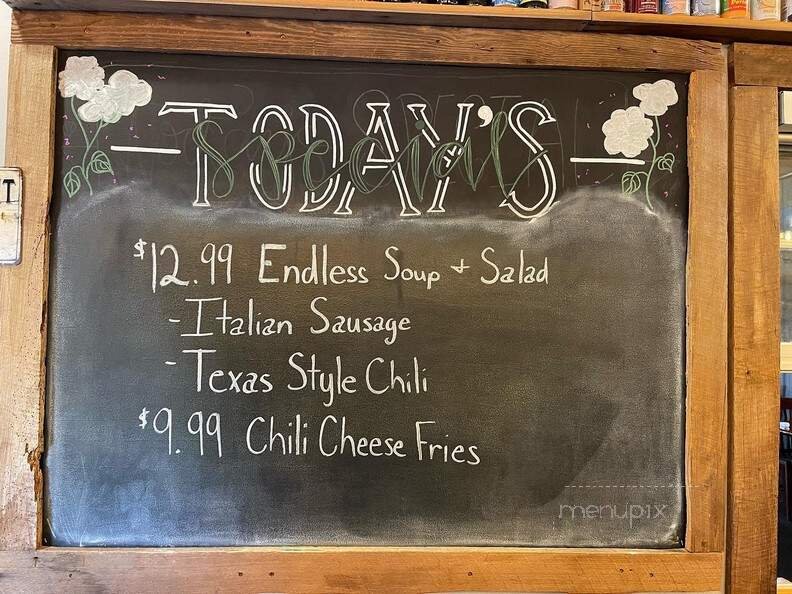 TODAY'S
Specials
$12.99 Endless Soup + Salad
- Italian Sausage
- Texas Style Chili
$9.99 Chili Cheese Fries
menupix